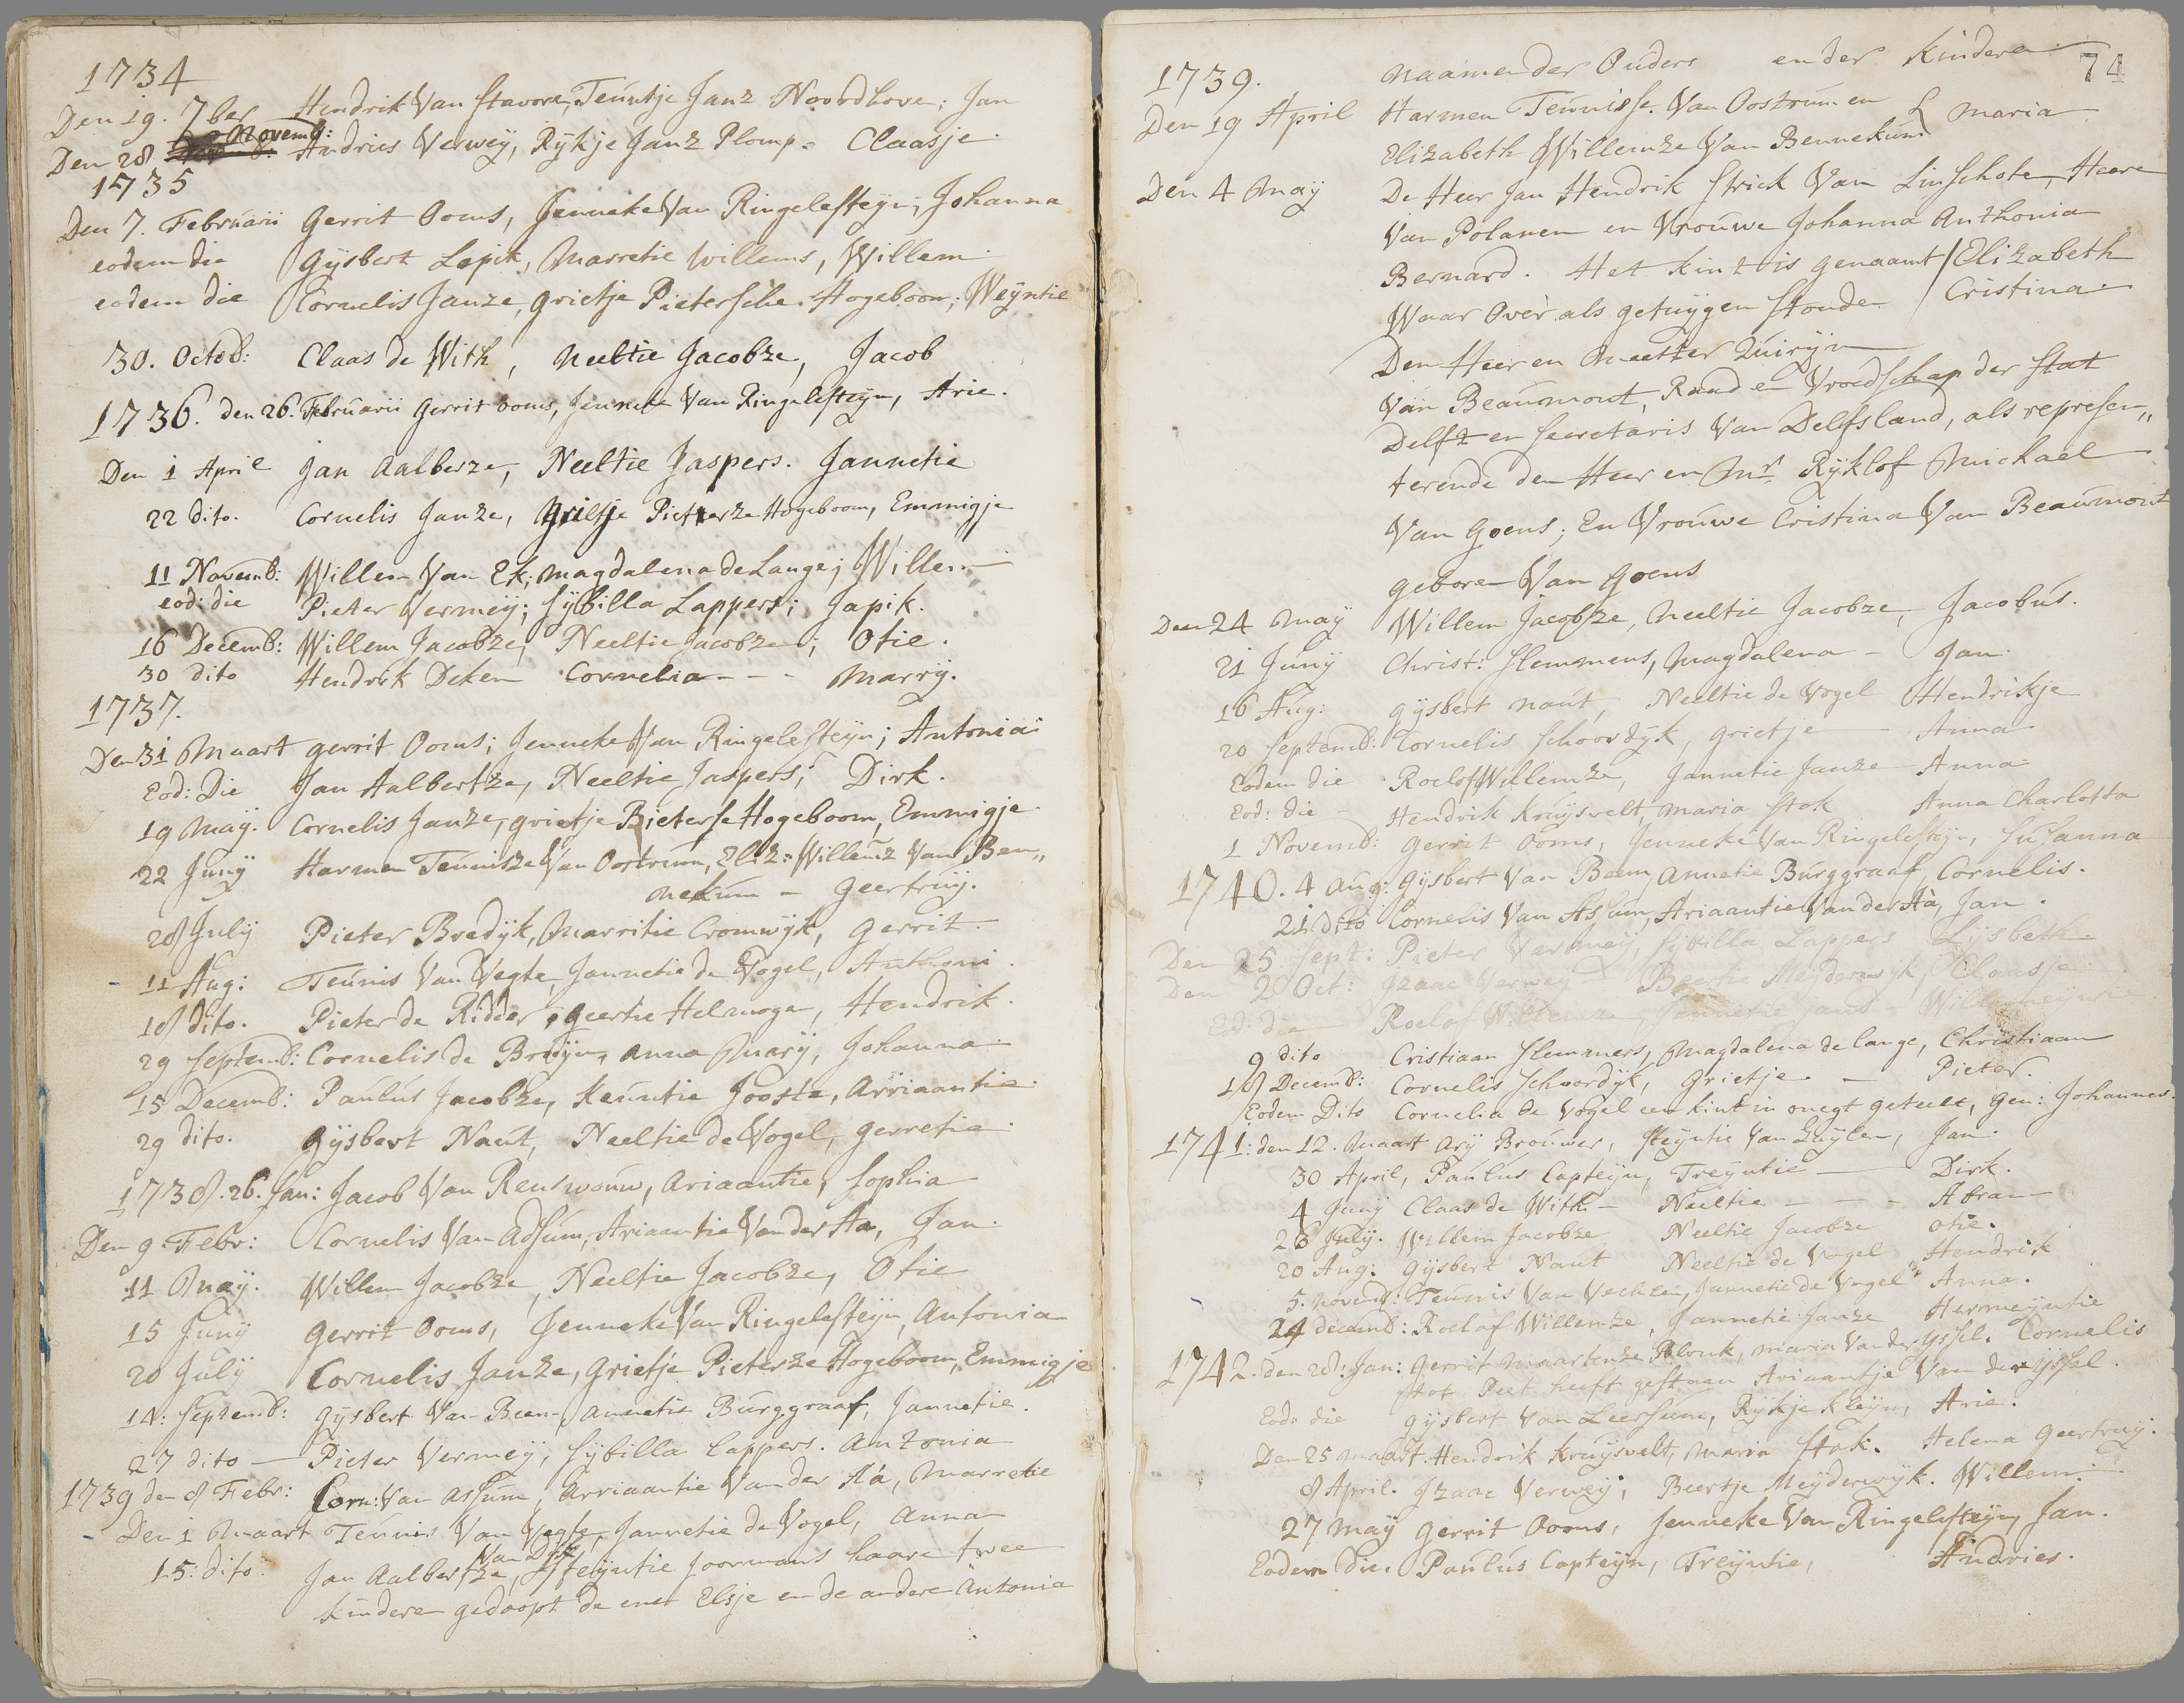 1734
Den 19. 7ber Hendrik Van Stavore, Teuntje Janz Noordhove; Jan
Den 28 Novemb: Andries Verweÿ, Rÿkje Janz Plomp. Claasje
1735
Den 7. Februarii Gerrit Ooms, Jenneke Van Ringelesteÿn, Johanna
eodem die Gÿsbert Lepik, Marretie Willems, Willem
eodem die Cornelis Janze, grietje Pietersche Hogeboom; Weÿntie
30. Octob: Claas de With, Neeltie Jacobze, Jacob
1736. den 26. Februarii Gerrit Ooms, Jenneke Van Ringelesteÿn, Arie.
Den 1 April Jan Aalberze, Neeltie Jaspers. Jannetie
22 dito. Cornelis Janze, Grietje Pieterze Hogeboom, Emmigje
11 Novemb: Willem Van Ek; Magdalena de Lange; Willem
eod: die Pieter Vermeÿ; Sÿbilla Lappers; Japik.
16 Decemb: Willem Jacobze; Neeltie Jacobze; Otie.
30 dito Hendrik Deken Cornelia - - - Marrÿ.
1737.
Den 31 Maart gerrit Ooms; Jenneke Van Ringelesteÿn; Antonia
Eod: Die Jan Aalbertze, Neeltie Jaspers; Dirk.
19 Maÿ. Cornelis Janze, grietje Pieterse Hogeboom, Emmigje.
22 Junÿ Harmen Teunisze Van Oostrum, Eliz: Willemz Van Ben„
nekum - Geertruÿ.
28 Julÿ Pieter Bredÿk, Marritie Cromwÿk, Gerrit.
11 Aug: Teunis Van Vegte, Jannetie de Vogel, Anthoni.
18 dito. Pieter de Ridder, Geertie Helmoge, Hendrik.
29 Septemb: Cornelis de Bruÿn, Anna Marÿ, Johanna
15 Decemb: Paulus Jacobze, Keuntie Jooste, Arriaantie.
29 dito. Gÿsbert Naut, Neeltie de Vogel, Gerretie.
1738. 26. Jan: Jacob Van Renswouw, Ariaantie, Sophia
Den 9. Febr: Cornelis Van Adsum, Ariaantie Van der Aa, Jan.
11 Maÿ. Willem Jacobze, Neeltie Jacobze, Otie
15 Junÿ Gerrit Ooms, Jenneke Van Ringelesteÿn, Antonia
20 Julÿ Cornelis Janze, Grietje Pieterze Hogeboom, Emmigje
14: Septemb: Gÿsbert Van Been, Annetie Burggraaf, Jannetie.
27 dito — Pieter Vermeÿ, Sÿbilla Lappers. Antonia
1739 den 8 Febr: Corn: Van Assum, Arriaantie Van der Aa, Marretie
Den 1 Maart Teunis Van Vegte, Jannetie de Vogel, Anna
15: dito. Jan Aalbertze Van Dÿk, Steÿntie Joormans haare twee
kindere gedoopt de ene Elsje en de andere Antonia
74
1739. Naamen der Ouders en der Kindere.
Den 19 April Harmen Teunisse Van Oostrum en
Elizabeth Willemze Van Bennekum Maria
Den 4 Maÿ De Heer Jan Hendrik Strick Van Linschote, Heere
Van Polanen en Vrouwe Johanna Anthonia
Bernard. Het kint is genaamt Elizabeth
Waar over als getuÿgen stonde Cristina
Den Heer en Meester Quirÿn
Van Beaumont, Raad en Vroedschap der stat
Delft en Secretaris Van Delfsland, als represen„
terende den Heer en Mr. Rÿklof Michael
Van Goens; En Vrouwe Cristina Van Beaumont
gebore Van Goens
Den 24 Maÿ Willem Jacobze, Neeltie Jacobze, Jacobus.
21 Junÿ Christ: Slemmens, Magdalena - Jan.
16 Aug: Gÿsbert Naut, Neeltie de Vogel Hendrikje
20 Septemb: Cornelis Schoordÿk, Grietje — Anna
Eodem die Roelof Willemze, Jannetie Janze Anna
Eod: die Hendrik Kruÿsvelt, Maria Stok Anna Charlotta
1 Novemb: Gerrit Ooms, Jenneke Van Ringelesteÿn, Susanna
1740. 4 Aug: Gÿsbert Van Been, Annetie Burggraaf, Cornelis.
21 dito Cornelis Van Assum, Ariaantie Van der Aà, Jan.
Den 25 Sept: Pieter Vermeÿ, Sÿbilla Lappers Lÿsbeth
Den 2 Oct: Izaac Verweÿ Beertie Meÿderwÿk, Claasje
Eod: die Roelof Willemze, Jannetie Janz - Willemeÿn
9 dito Cristiaan Slemmers, Magdalena de Lange, Christiaan
18 Decemb: Cornelis Schoordÿk, Grietje. — Pieter.
Eodem Dito Cornelia de Vogel een kint in onegt geteelt, gen: Johannes.
1741: den 12. Maart Arÿ Brouwer, Steÿntie Van Zuÿlen, Jan.
30 April, Paulus Capteÿn, Treÿntie — Dirk.
4 Junÿ Claas de With - Neeltie - - - Abram
26 Julÿ. Willem Jacobze Neeltie Jacobze Otie.
20 Aug: Gÿsbert Naut Neeltie de Vogel Hendrik
5. Novemb: Teunis Van Vechten, Jannetie de Vogel Anna.
24 Decemb: Roelof Willemze, Jannetie Janze Harmeÿntie
1742. den 28. Jan: Gerrit Maartenze Blonk, Maria Van der ÿssel. Cornelis
tot Peet heeft gestaan Ariaantje Van der ÿssel.
Eod: die Gÿsbert Van Leersum, Rÿkje Kleÿn, Arie.
Den 25 Maart. Hendrik Kruÿsvelt, Maria Stok. Helena Geertruÿ.
8 April. Izaac Verweÿ, Beertje Meÿderwÿk. Willem.
27 Maÿ Gerrit Ooms, Jenneke Van Ringelesteÿn, Jan.
Eodem die. Paulus Capteÿn, Treÿntie, Andries.